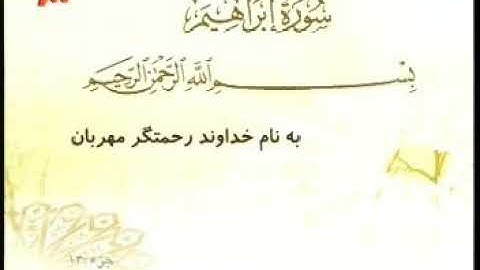 سُورَةُ إِبْرَاهِيمَ
بِسْمِ اللَّهِ الرَّحْمَٰنِ الرَّحِيمِ
به نام خداوند رحمتگر مهربان
جزء ١٣